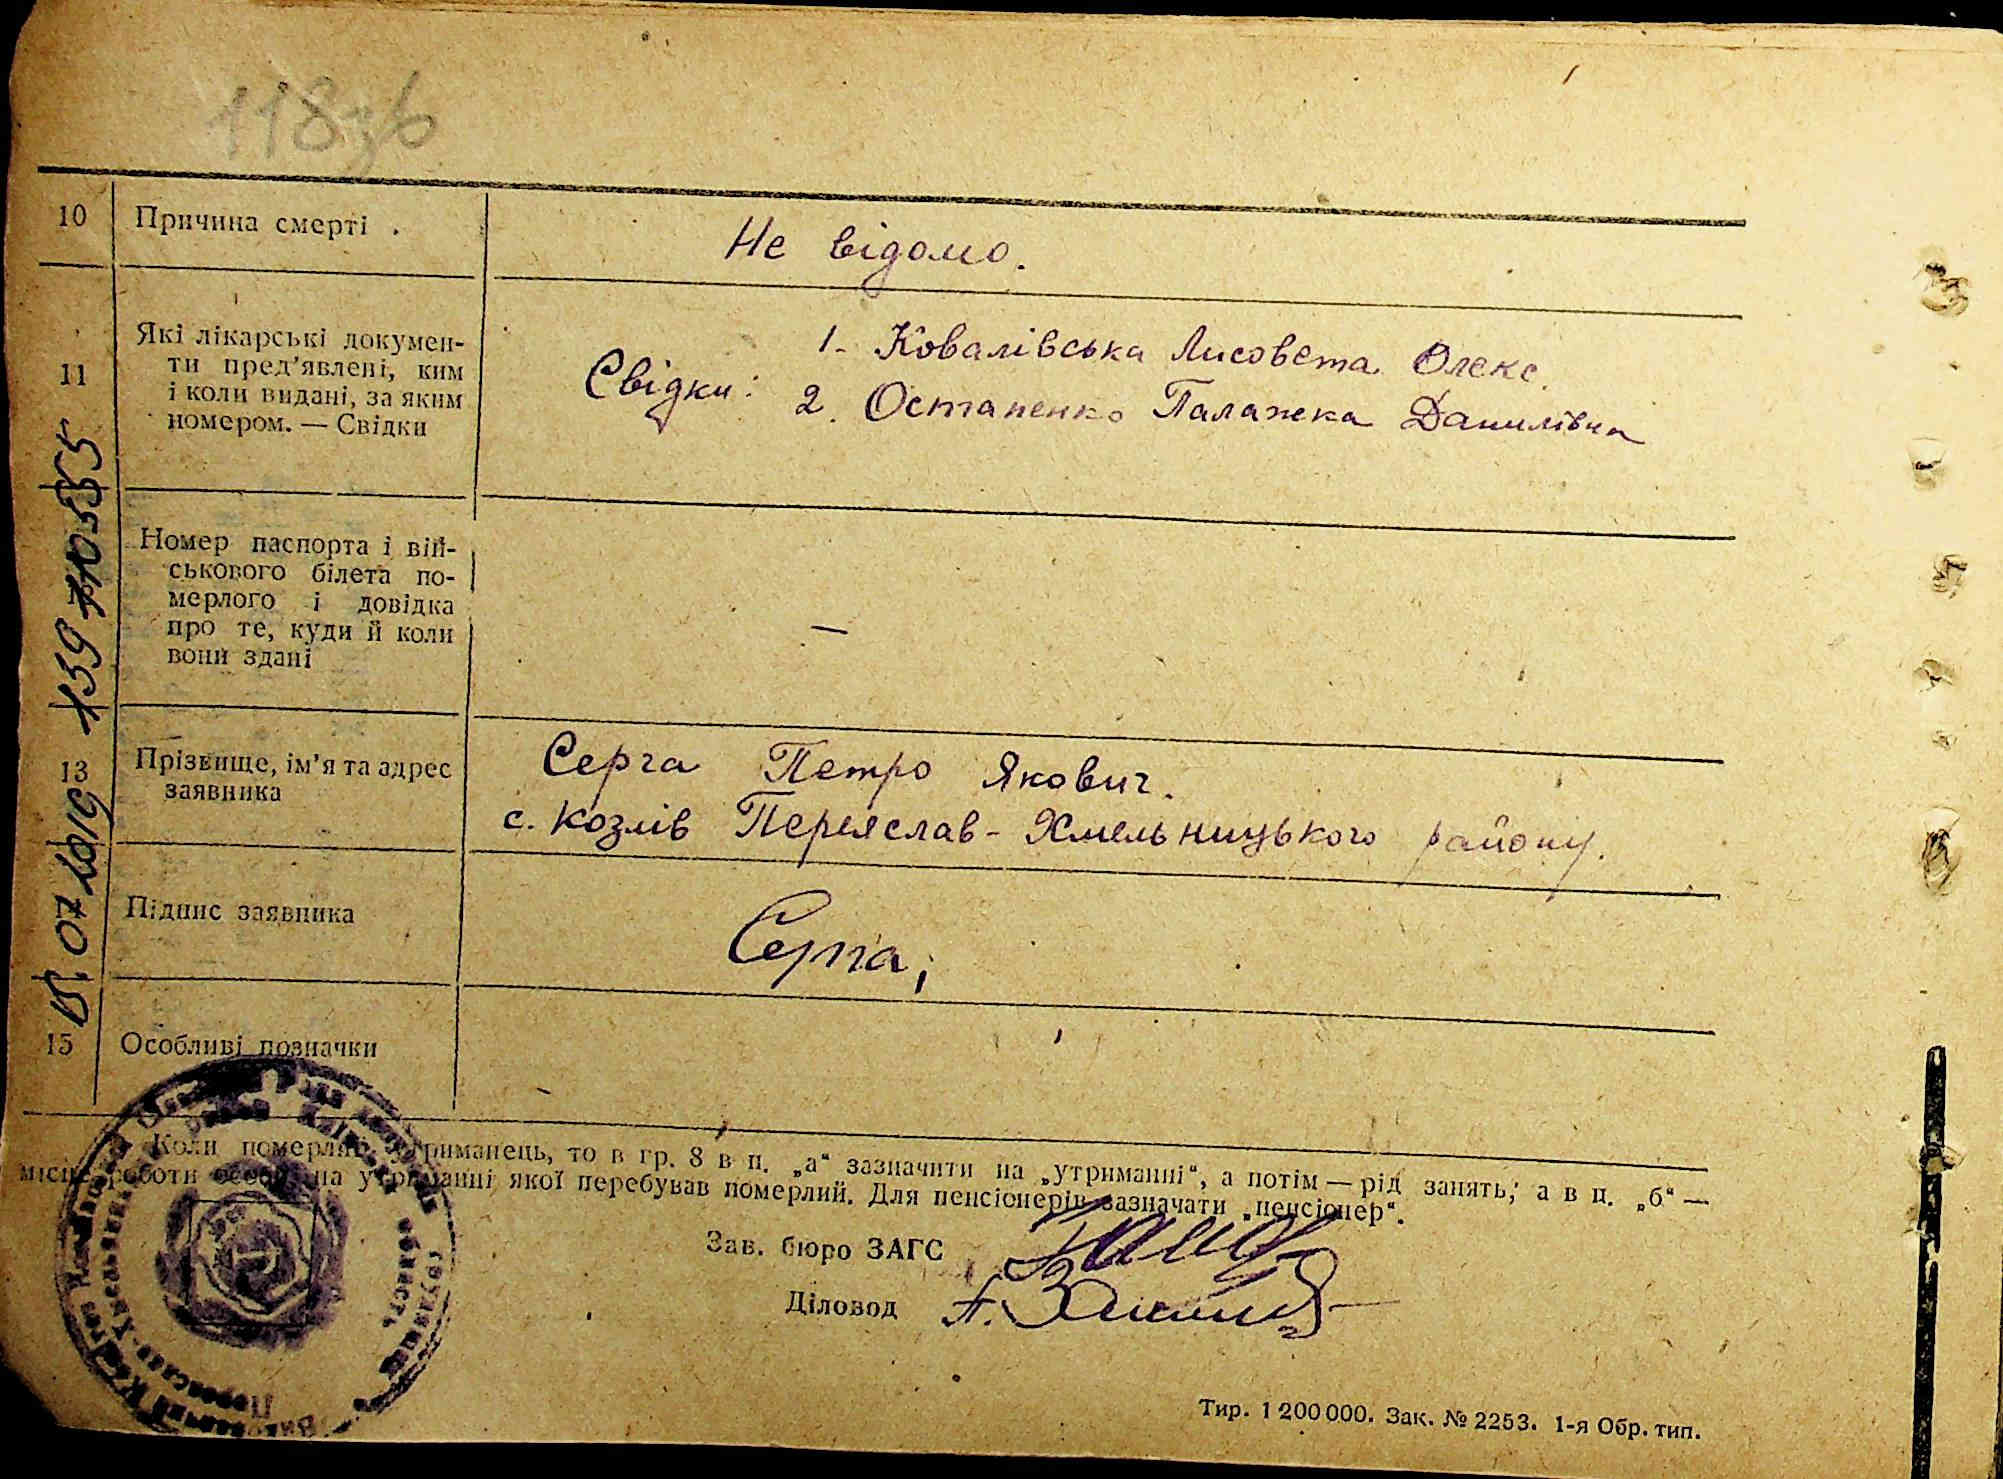 118зв
10 Причина смерті . Не відомо.
11 Які лікарські докумен-
ти пред'явлені, ким
і коли видані, за яким
номером. — Свідки
Свідки: 1. Ковалівська Лисовета Олекс.
2. Остапенко Палажка Данилівна
Номер паспорта і вій-
ськового білета по-
мерлого і довідка
про те, куди й коли
вони здані
—
13 Прізвище, ім'я та адрес
заявника
Серга Петро Якович.
с. Козлів Переяслав-Хмельницького району.
Підпис заявника Серга
15 Особливі позначки
Коли померлий утриманець, то в гр. 8 в п. „а“ зазначити на „утриманні“, а потім — рід занять; а в п. „б“ —
місце роботи особи, на утриманні якої перебував померлий. Для пенсіонерів зазначати „пенсіонер“.
Зав. бюро ЗАГС
Діловод А.
Тир. 1 200 000. Зак. № 2253. 1-я Обр. тип.